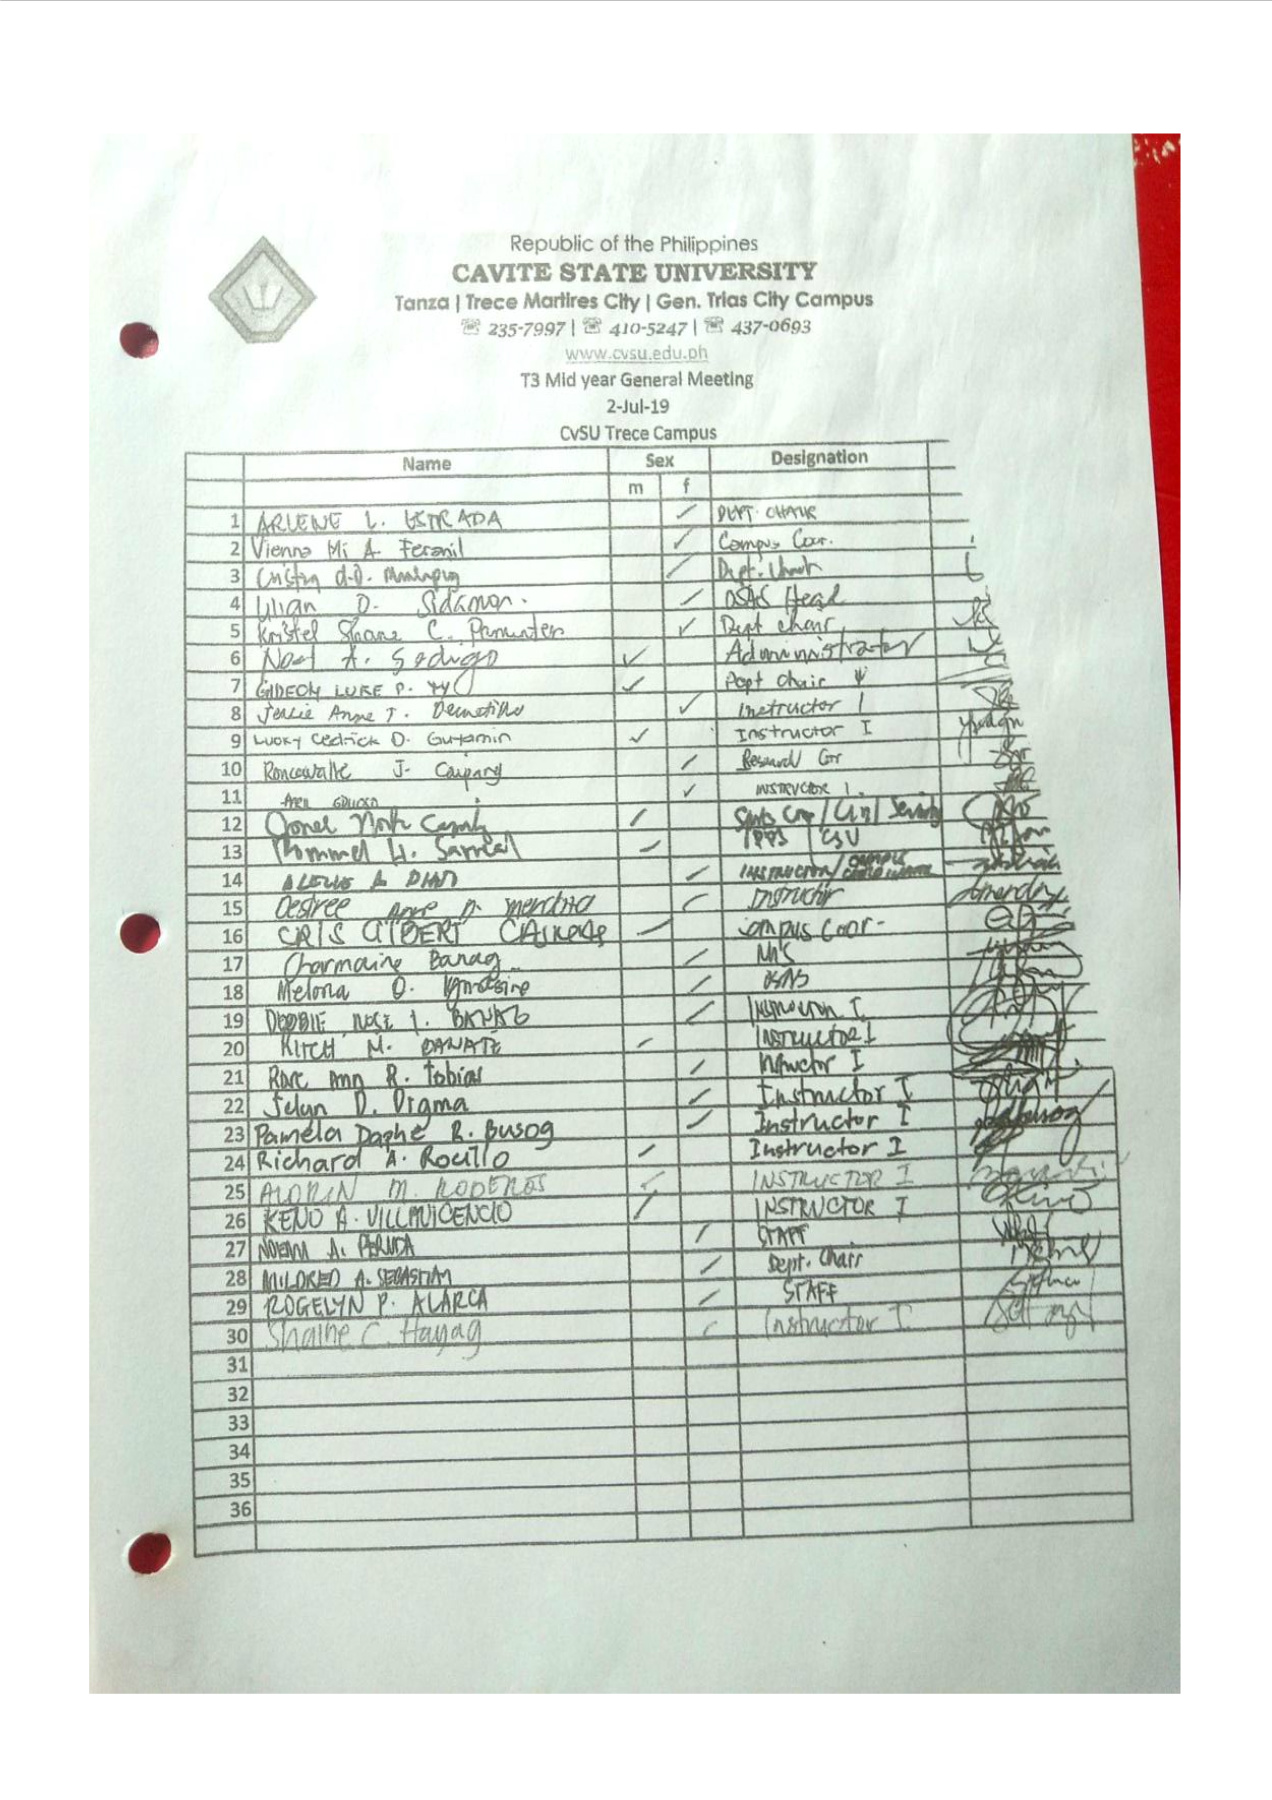 Republic of the Philippines
CAVITE STATE UNIVERSITY
Tanza | Trece Martires City | Gen. Trias City Campus
☏ 235-7997 | ☏ 410-5247 | ☏ 437-0693
www.cvsu.edu.ph
T3 Mid year General Meeting
2-Jul-19
CvSU Trece Campus
Name Sex Designation
m f
1 ARLENE L. ESTRADA DEPT. CHAIR
2 Vienna Mi A. Feranil Campus Coor.
3 Dept. Chair
4 Lilian D. Sidamon. OSAS Head
5 Kristel Shane C. Dept chair
6 Noel A. Sedigo Administrator
7 GIDEON LUKE P. TY Dept Chair
8 Anne T. Instructor I
9 Lucky Cedrick D. Instructor I
10 J. Research
11 INSTRUCTOR I.
12
13 Rommel H.
14 A INSTRUCTOR/
15 Desiree Anne Instructor
16 CRIS ALBERT Campus Coor-
17 Charmaine Banag
18 Melona O. OSAS
19 DEBBIE ROSE I. BANAG Instructor I
20 KITCH M. DANATE INSTRUCTOR I
21 Rose Ann R. Tobias Instructor I
22 Jelyn D. Digma Instructor I
23 Pamela Daphe R. Busog Instructor I
24 Richard A. Rocillo Instructor I
25 ALDRIN M. RODENAS INSTRUCTOR I
26 KENO A. VILLAVICENCIO INSTRUCTOR I
27 NOEMI A. PERUDA STAFF
28 MILDRED A. SEBASTIAN Dept. Chair
29 ROGELYN P. ALARCA STAFF
30 Shaine C. Hayag Instructor I
31
32
33
34
35
36